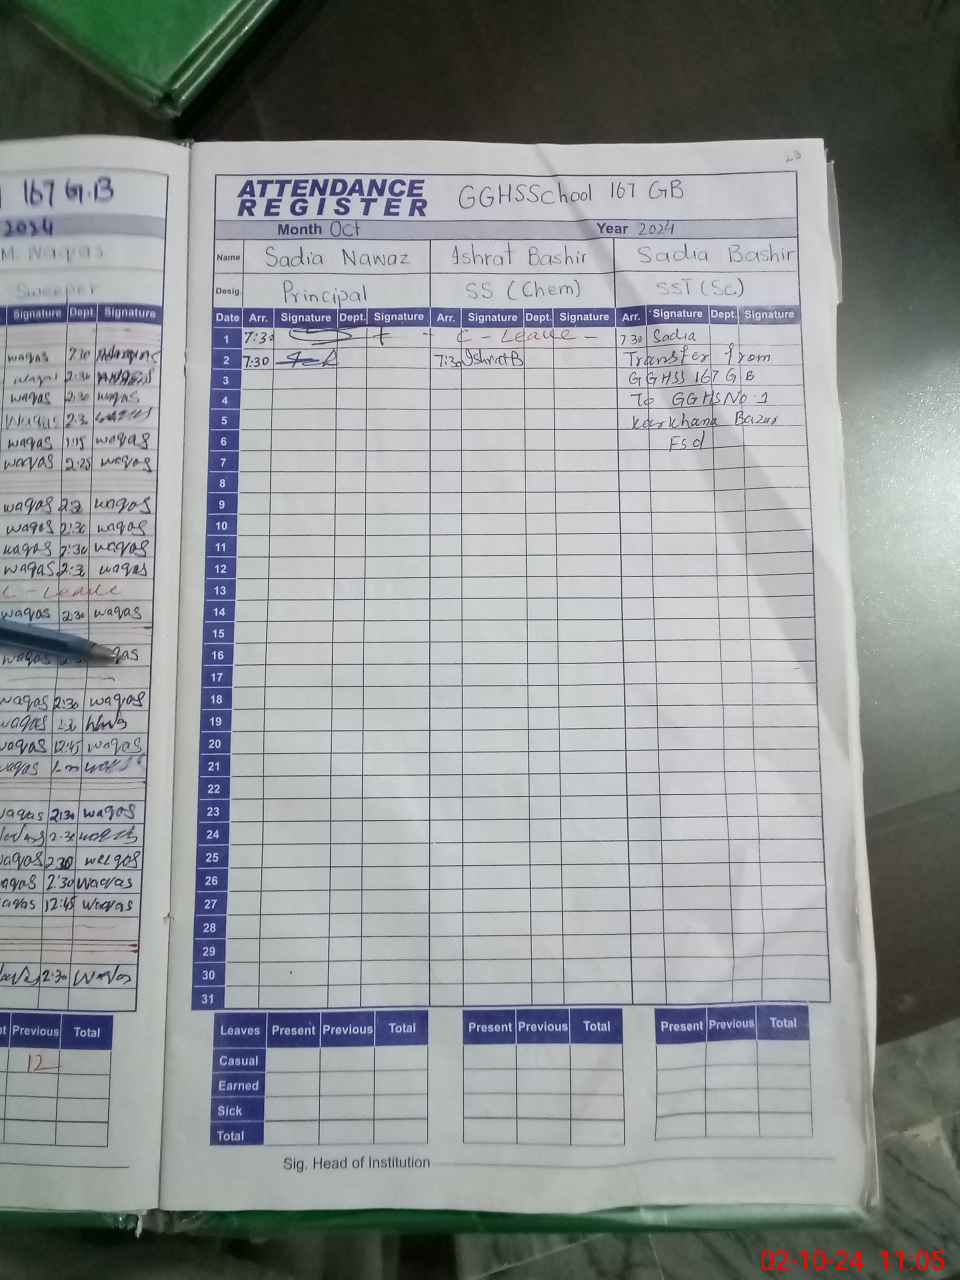 23
167 G.B
2024
M. Waqas
Sweeper
Signature Dept Signature
waqas 7:10
waqas 2:30
waqas 2:30 waqas
Waqas 2:3
waqas 1:15 waqas
waqas 2:25 waqas
waqas 2:3 waqas
waqas 2:30 waqas
waqas 2:30 waqas
waqas 2:3 waqas
C - Leave
waqas 2:30 waqas
waqas
waqas 2:30 waqas
waqas
waqas 12:45 waqas
waqas
waqas 2:30 waqas
2:30
waqas 2:30 waqas
waqas 2:30 waqas
waqas 12:45 waqas
2:30 waqas
Previous Total
12
ATTENDANCE
REGISTER
GGHSSchool 167 GB
Month Oct Year 2024
Name Sadia Nawaz Ishrat Bashir Sadia Bashir
Desig. Principal SS (Chem) SST (Sc)
Date Arr. Signature Dept. Signature Arr. Signature Dept. Signature Arr. Signature Dept. Signature
1 7:30 C - Leave - 7:30 Sadia
2 7:30 7:30 Ishrat B Transfer from
3 GGHSS 167 GB
4 To GGHS No 1
5 Karkhana Bazar
6 Fsd
7
8
9
10
11
12
13
14
15
16
17
18
19
20
21
22
23
24
25
26
27
28
29
30
31
Leaves Present Previous Total Present Previous Total Present Previous Total
Casual
Earned
Sick
Total
Sig. Head of Institution
02-10-24 11:05